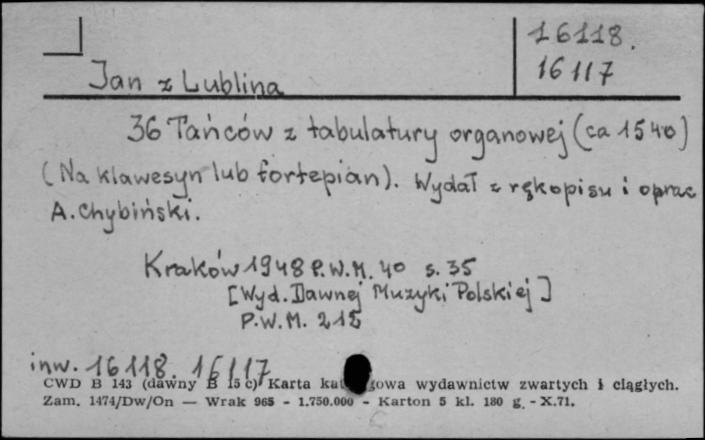 16118.
16117
Jan z Lublina
36 Tańców z tabulatury organowej (ca 1540)
(Na klawesyn lub fortepian). Wydał z rękopisu i oprac
A. Chybiński.
Kraków 1948 P.W.M. 40 s. 35
[Wyd. Dawnej Muzyki Polskiej]
P.W.M. 215
inw. 16118. 16117
CWD B 143 (dawny B 15 c) Karta kat gowa wydawnictw zwartych i ciągłych.
Zam. 1474/Dw/On — Wrak 965 - 1.750.000 - Karton 5 kl. 180 g. - X.71.